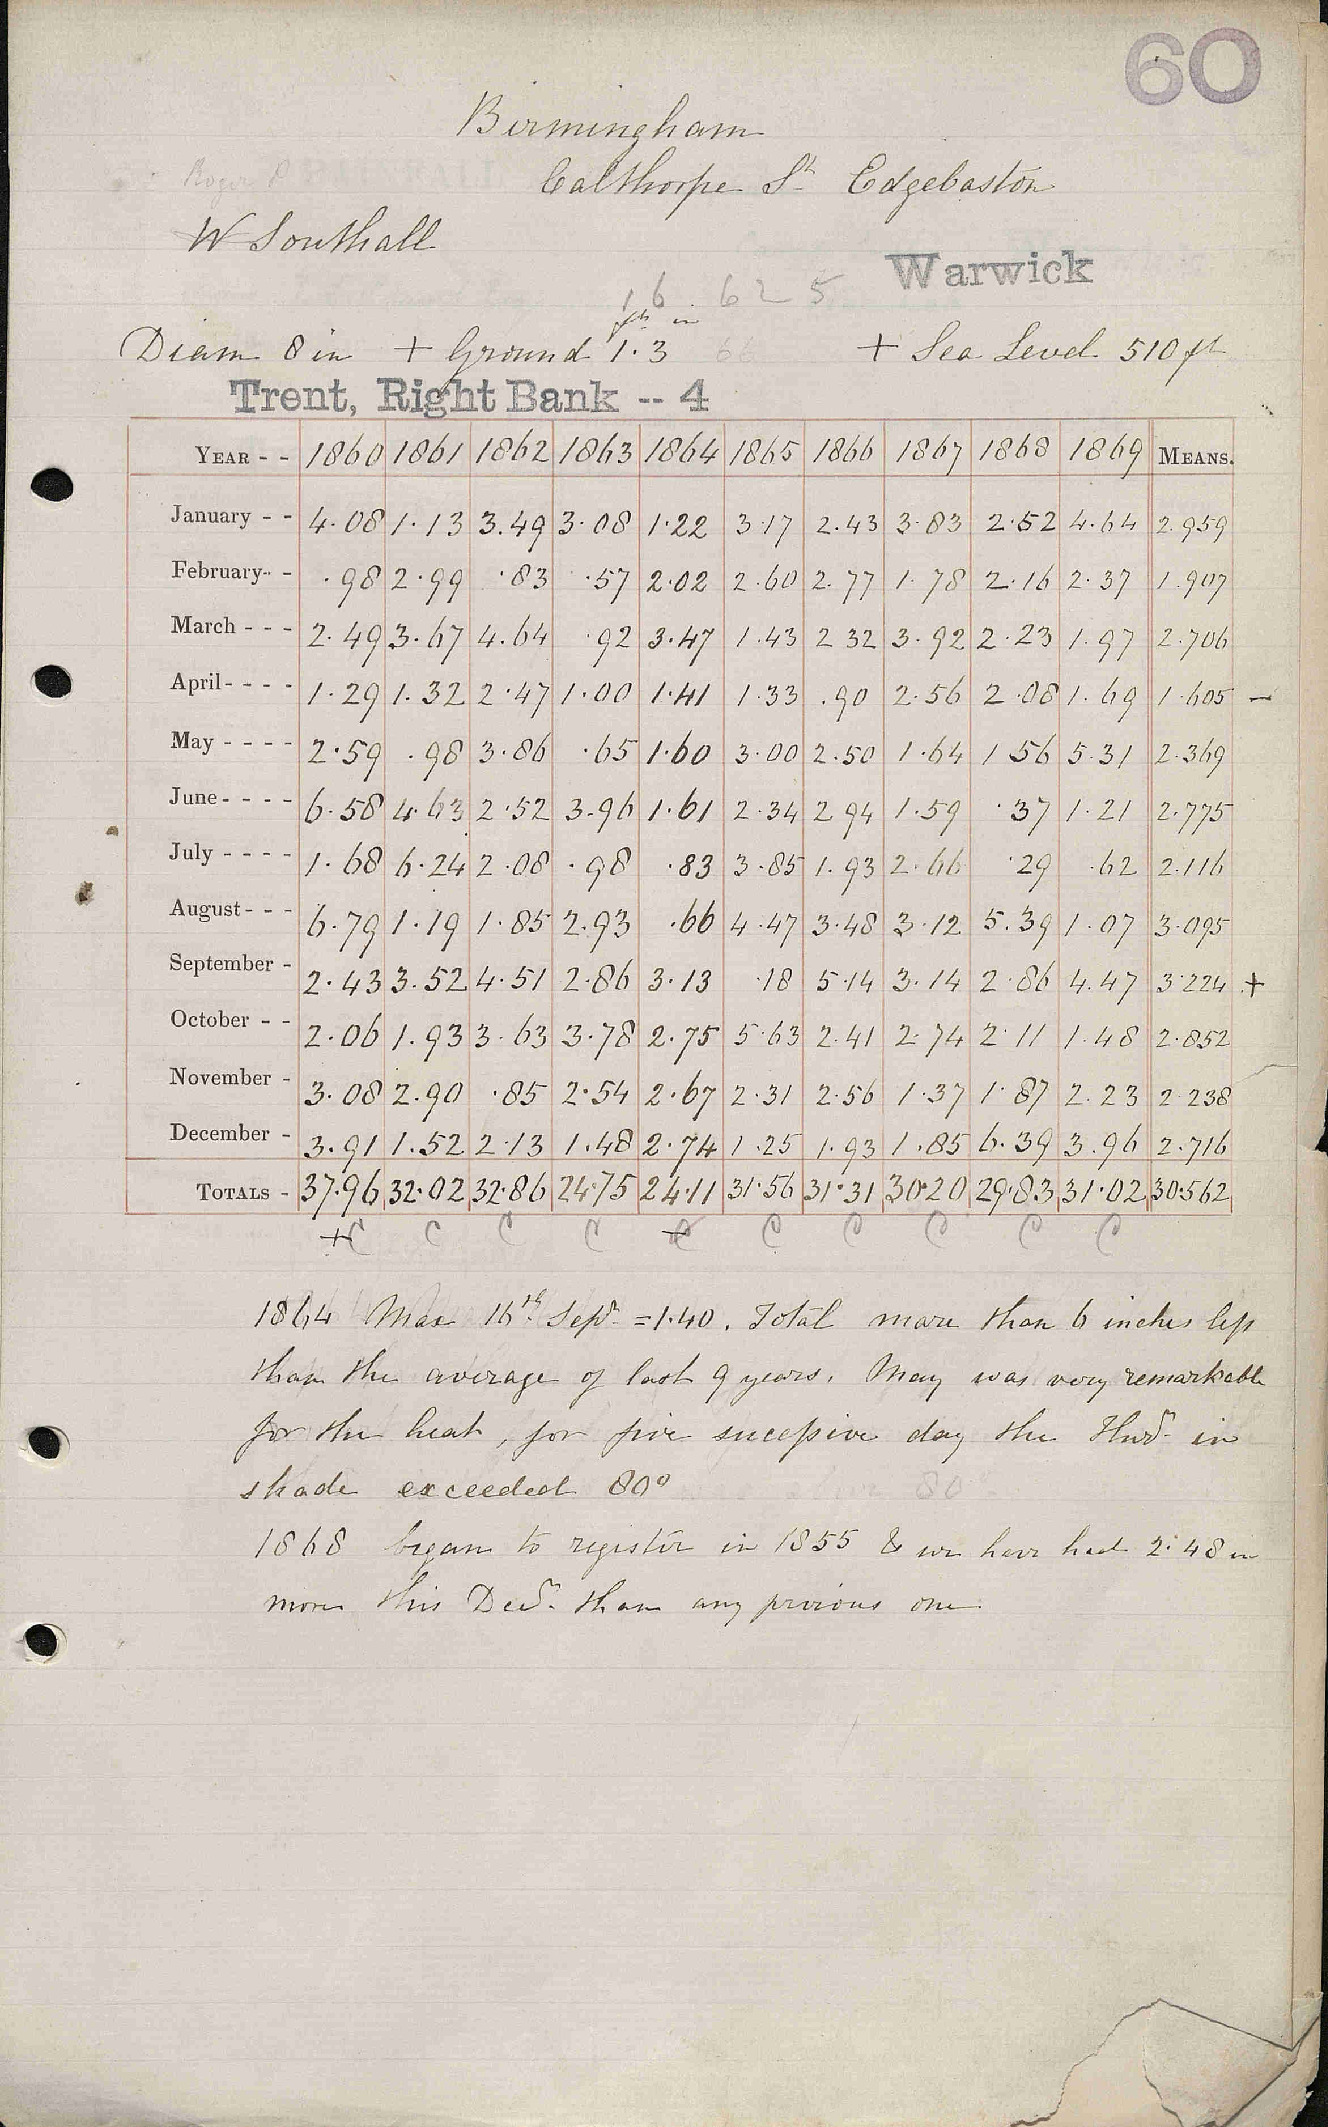 60
Birmingham
Calthorpe St Edgebaston
W Southall
Warwick
16 62 5
ft in
Diam 8 in + Ground 1.3 66 + Sea Level 510 ft
Trent, Right Bank -- 4
YEAR - - 1860 1861 1862 1863 1864 1865 1866 1867 1868 1869 MEANS.
January - - 4.08 1.13 3.49 3.08 1.22 3.17 2.43 3.83 2.52 4.64 2.959
February - - .98 2.99 .83 .57 2.02 2.60 2.77 1.78 2.16 2.37 1.907
March - - - 2.49 3.67 4.64 .92 3.47 1.43 2 32 3.92 2.23 1.97 2.706
April - - - - 1.29 1.32 2.47 1.00 1.41 1.33 .90 2.56 2.08 1.69 1.605 -
May - - - - 2.59 .98 3.86 .65 1.60 3.00 2.50 1.64 1 56 5.31 2.369
June - - - - 6.58 4.63 2.52 3.96 1.61 2.34 2 94 1.59 .37 1.21 2.775
July - - - - 1.68 6.24 2.08 .98 .83 3.85 1.93 2.66 .29 .62 2.116
August - - - 6.79 1.19 1.85 2.93 .66 4.47 3.48 3.12 5.39 1.07 3.095
September - 2.43 3.52 4.51 2.86 3.13 .18 5.14 3.14 2.86 4.47 3.224 +
October - - 2.06 1.93 3.63 3.78 2.75 5.63 2.41 2.74 2.11 1.48 2.852
November - 3.08 2.90 .85 2.54 2.67 2.31 2.56 1.37 1.87 2.23 2 238
December - 3.91 1.52 2.13 1.48 2.74 1.25 1.93 1.85 6.39 3.96 2.716
TOTALS - 37.96 32.02 32.86 24.75 24.11 31.56 31.31 30.20 29.83 31.02 30.562
+C C C C C C C C C C
1864 Max 16th Sept = 1.40. Total more than 6 inches less
than the average of last 9 years. May was very remarkable
for the heat, for five successive day the Thr in
shade exceeded 80°
1868 began to register in 1855 & we have had 2.48 in
more this Decr. than any privious one